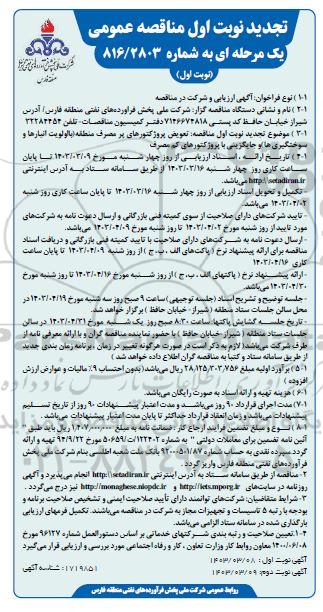 تجدید نوبت اول مناقصه عمومی
یک مرحله ای به شماره ۸۱۶/۲۸۰۳
(نوبت اول)
شرکت ملی پخش فرآورده‌های نفتی ایران
منطقه فارس
۱-۱ نوع فراخوان: آگهی ارزیابی و شرکت در مناقصه
۲-۱) نام و نشانی دستگاه مناقصه گزار: شرکت ملی پخش فرآورده‌های نفتی منطقه فارس/ آدرس
شیراز خیابان حافظ کد پستی ۷۱۴۶۶۷۴۸۱۸ دفتر کمیسیون مناقصات- تلفن ۳۲۲۸۴۴۵۴
۳-۱) موضوع تجدید نوبت اول مناقصه: تعویض پروژکتورهای پر مصرف منطقه(بااولویت انبارها و
سوختگیری ها) و جایگزینی با پروژکتورهای کم مصرف
۴-۱) تاریخ ارائه اسناد ارزیابی از روز چهار شنبه مورخ ۱۴۰۳/۰۳/۰۹ تا پایان
ساعت کاری روز چهار شنبه ۱۴۰۳/۰۳/۱۶ از طریق سامانه ستاد به آدرس اینترنتی
http://setadiran.ir می‌باشد.
- تکمیل و تحویل اسناد ارزیابی از روز چهار شنبه ۱۴۰۳/۰۳/۱۶ تا پایان ساعت کاری روز شنبه
۱۴۰۳/۰۴/۰۲ می‌باشد.
- تایید شرکت‌های دارای صلاحیت از سوی کمیته فنی بازرگانی و ارسال دعوت نامه به شرکت‌های
مورد تایید از روز شنبه مورخ ۱۴۰۳/۰۴/۰۲ تا روز شنبه مورخ ۱۴۰۳/۰۴/۰۹ می‌باشد.
- ارسال دعوت نامه به شرکت‌های دارای صلاحیت با تایید کمیته فنی بازرگانی و دریافت اسناد
مناقصه برای ارائه پیشنهاد نرخ ( پاکت‌های الف . ب . ج ) از روز شنبه ۱۴۰۳/۰۴/۰۹ تا پایان ساعت
کاری ۱۴۰۳/۰۴/۱۶
- ارائه پیشنهاد نرخ ( پاکتهای الف . ب . ج ) از روز شنبه مورخ ۱۴۰۳/۰۴/۱۶ تا روز شنبه مورخ
۱۴۰۳/۰۴/۳۰ می‌باشد.
- جلسه توضیح و تشریح اسناد (جلسه توجیهی) ساعت ۹ صبح روز سه شنبه مورخ ۱۴۰۳/۰۴/۱۹ در
محل سالن جلسات ستاد منطقه (شیراز- خیابان حافظ ) برگزار خواهد شد.
- تاریخ جلسه گشایش پاکتها: ساعت ۸:۳۰ صبح روز یک شنبه مورخ ۱۴۰۳/۰۴/۳۱ در سالن
جلسات ستاد منطقه ( شیراز- خیابان حافظ ) با حضور نماینده مناقصه گران و با ارائه معرفی نامه از
طرف شرکت می‌باشد( لازم به ذکر است در صورت هرگونه تغییر در زمان ، برنامه زمان بندی جدید
از طریق سامانه ستاد و کتبا به مناقصه گران اطلاع داده خواهد شد )
۵-۱) برآورد اولیه مبلغ ۲۸،۱۲۵،۳۰۳،۷۵۶ ریال می‌باشد(بدون احتساب ۹٪ مالیات و عوارض ارزش
افزوده )
۶-۱) هزینه تهیه و ارائه اسناد به صورت رایگان می‌باشد.
۷-۱) مدت اجرای قرارداد ۹۰ روز می‌باشد و مدت اعتبار پیشنهادات ۹۰ روز از تاریخ تسلیم
پیشنهادات می‌باشد و زمان انعقاد قرارداد حداکثر تا پایان مدت اعتبار پیشنهادات می‌باشد.
۸-۱) نوع و مبلغ تضمین فرایند ارجاع کار: ضمانت نامه به مبلغ ۱،۴۰۷،۰۰۰،۰۰۰ ریال باید طبق
آئین نامه تضمین برای معاملات دولتی " به شماره ۱۲۳۴۰۲/ت۵۰۶۵۹هـ مورخ ۹۴/۹/۲۲ تهیه و ارائه
گردد
فرآورده‌های نفتی منطقه فارس واریز گردد .
۲-مناقصه از طریق سامانه ستاد به آدرس اینترنتی http:\\setadiran.ir انجام می‌پذیرد و آگهی
روزنامه در سایت‌های http://iets.mporg.ir و http://monaghese.niopdc.ir نیز درج می‌گردد .
۳-شرایط متقاضیان: شرکت‌های توانمند دارای تأیید صلاحیت ایمنی و تشخیص صلاحیت برنامه و
بودجه با رتبه ۵ تاسیسات و تجهیزات مجاز به شرکت در مناقصه می‌باشند. تکمیل فرمهای ارزیابی
بارگذاری شده در سامانه ستاد الزامی می‌باشد.
۴-۱.تعیین صلاحیت و رتبه بندی شرکتهای خدماتی بر اساس دستورالعمل شماره ۹۶۱۲۷ مورخ
۱۴۰۰/۰۶/۰۸ معاون روابط کار وزارت تعاون ، کار و رفاه اجتماعی مورد بررسی و ارزیابی قرار می‌گیرد
آگهی نوبت اول: ۱۴۰۳/۰۳/۰۸
آگهی نوبت دوم: ۱۴۰۳/۰۳/۰۹
شناسه آگهی : ۱۷۱۹۸۵۱
روابط عمومی شرکت ملی پخش فرآورده‌های نفتی منطقه فارس